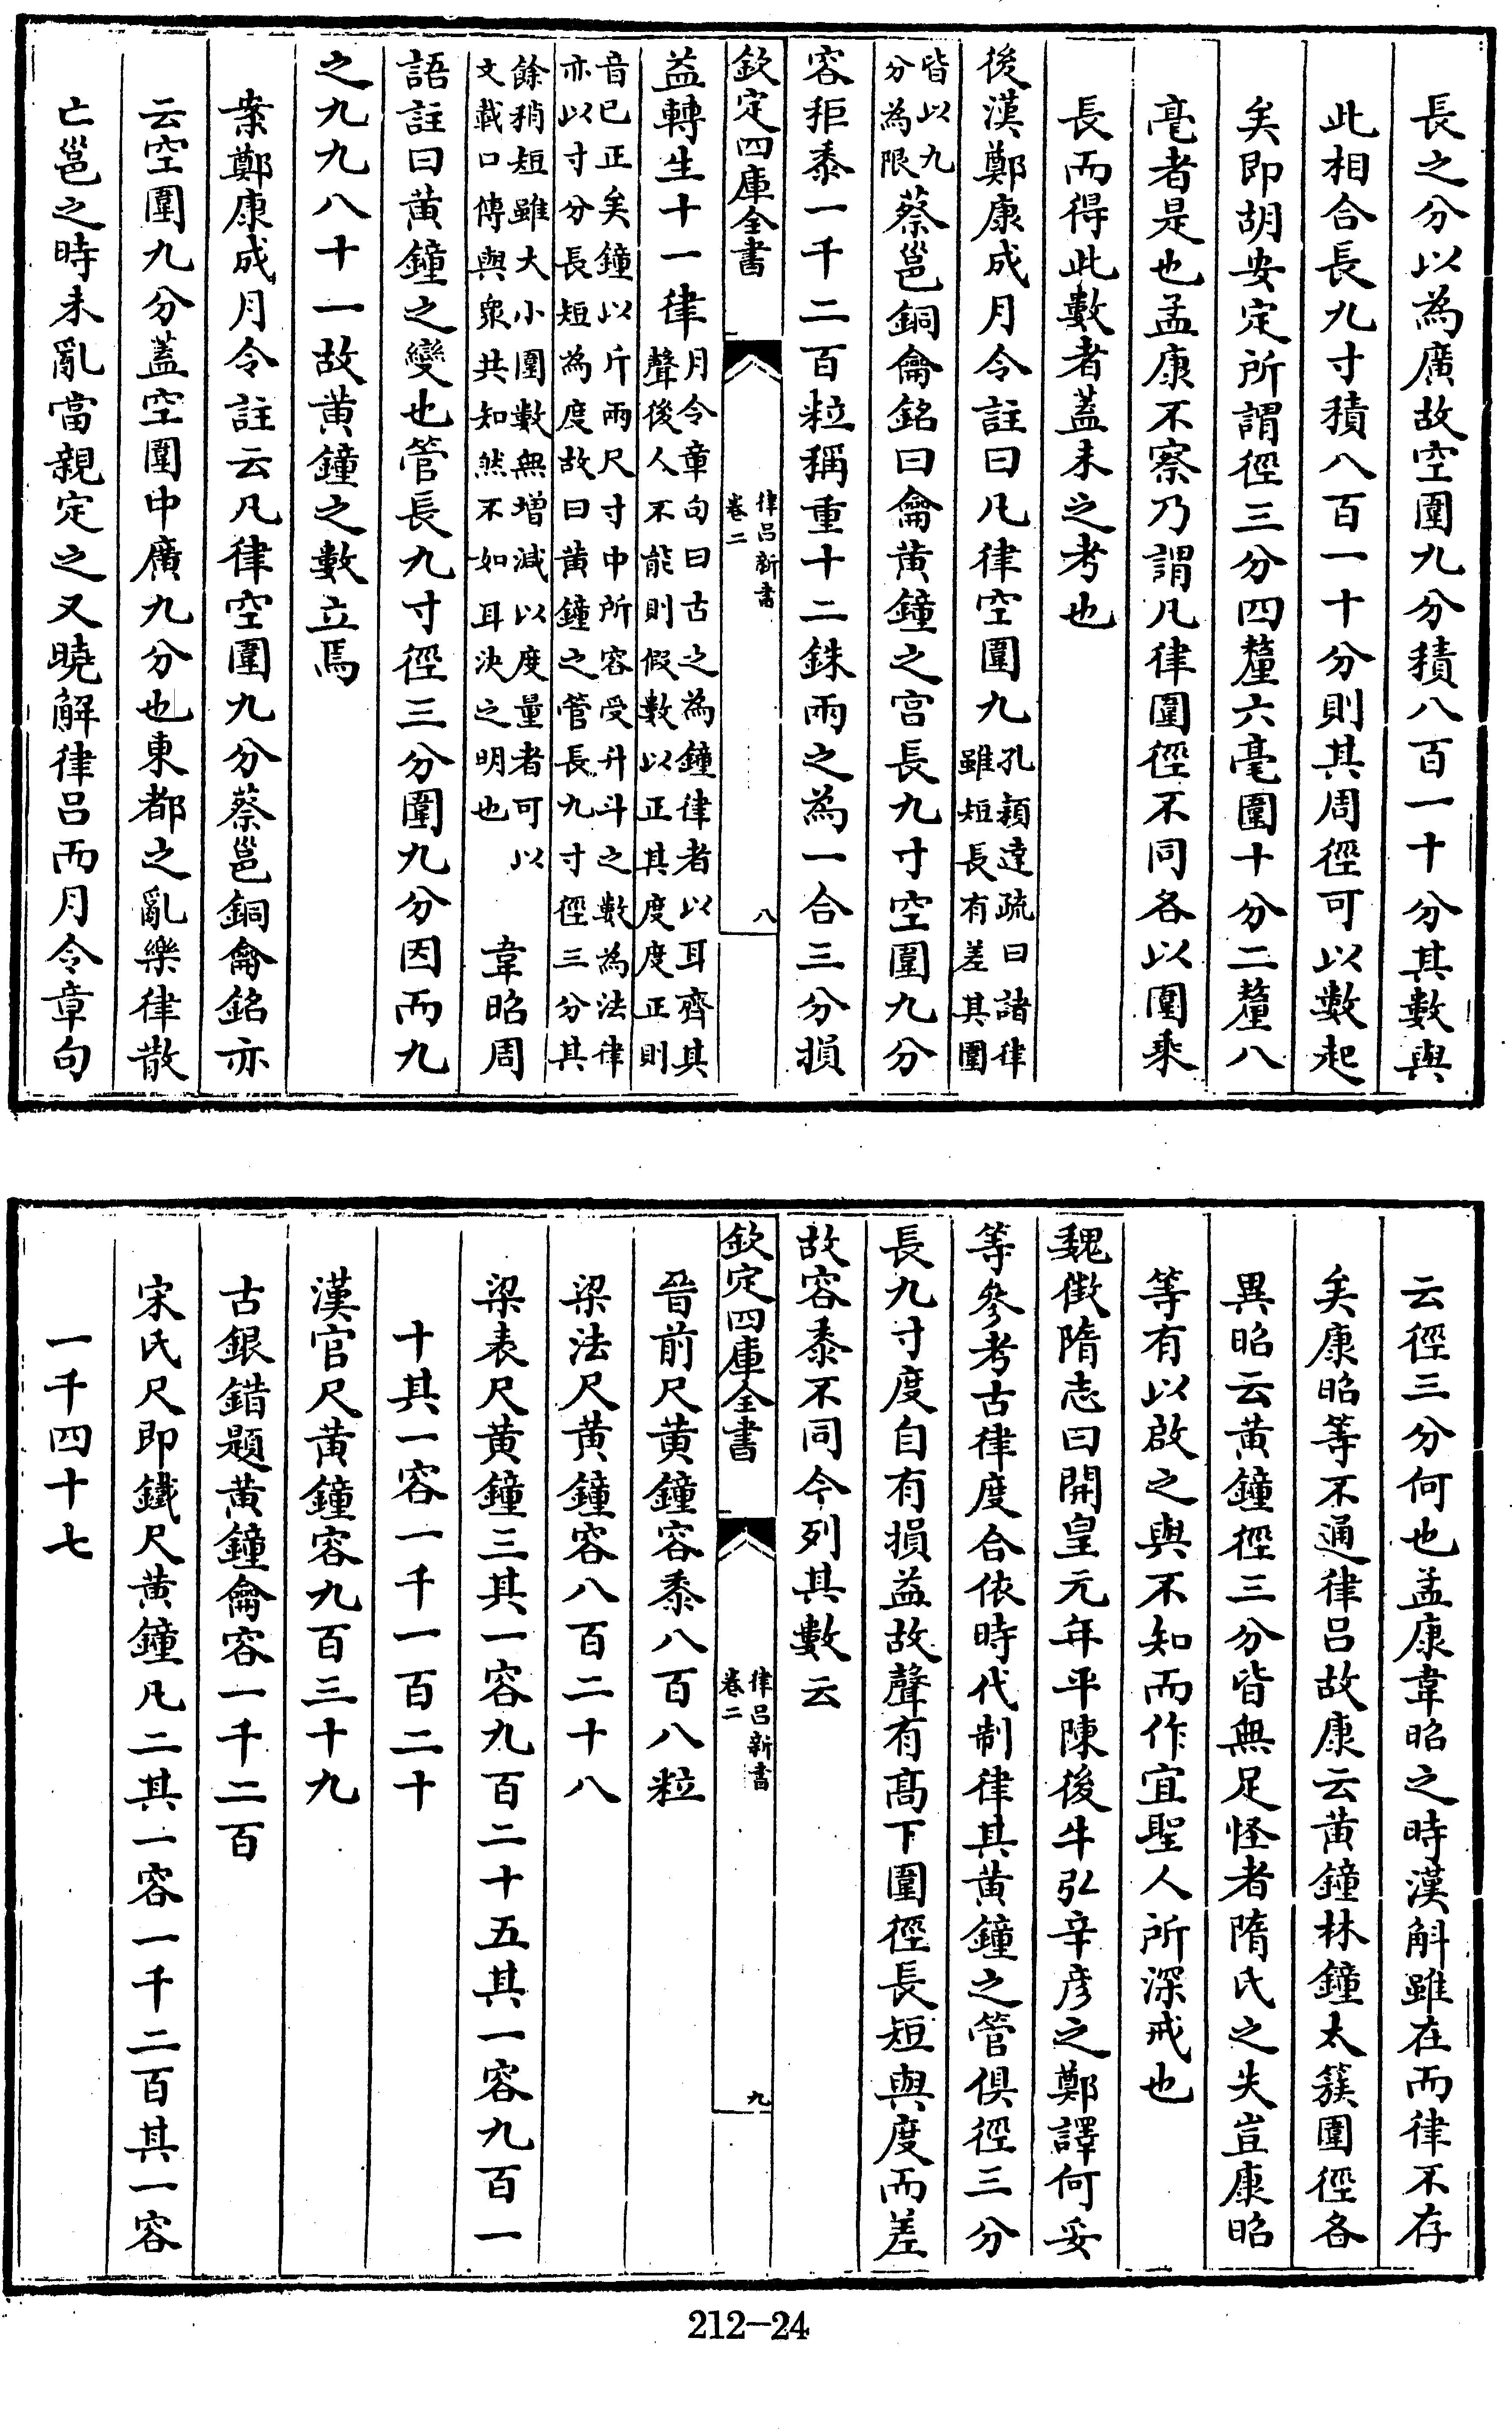 長之分以為廣故空圍九分積八百一十分其數與
此相合長九寸積八百一十分則其周徑可以數起
矣即胡安定所謂徑三分四釐六毫圍十分二釐八
毫者是也孟康不察乃謂凡律圍徑不同各以圍乘
長而得此數者蓋未之考也
後漢鄭康成月令註曰凡律空圍九孔穎達疏曰諸律雖短長有差其圍
皆以九分為限蔡邕銅龠銘曰龠黄鐘之宫長九寸空圍九分
容秬黍一千二百粒稱重十二銖兩之為一合三分損
欽定四庫全書
律吕新書
卷二
八
益轉生十一律月令章句曰古之為鐘律者以耳齊其聲後人不能則假數以正其度度正則
音已正矣鐘以斤兩尺寸中所容受升斗之數為法律亦以寸分長短為度故曰黄鐘之管長九寸徑三分其
餘稍短雖大小圍數無增減以度量者可以文載口傳與衆共知然不如耳決之明也 韋昭周
語註曰黄鐘之變也管長九寸徑三分圍九分因而九
之九九八十一故黄鐘之數立焉
案鄭康成月令註云凡律空圍九分蔡邕銅龠銘亦
云空圍九分蓋空圍中廣九分也東都之亂樂律散
亡邕之時未亂當親定之又曉解律吕而月令章句
云徑三分何也孟康韋昭之時漢斛雖在而律不存
矣康昭等不通律吕故康云黄鐘林鐘太簇圍徑各
異昭云黄鐘徑三分皆無足怪者隋氏之失豈康昭
等有以啟之與不知而作宜聖人所深戒也
魏徵隋志曰開皇元年平陳後牛弘辛彦之鄭譯何妥
等參考古律度合依時代制律其黄鐘之管俱徑三分
長九寸度自有損益故聲有髙下圍徑長短與度而差
故容黍不同今列其數云
欽定四庫全書
律吕新書
卷二
九
晉前尺黄鐘容黍八百八粒
梁法尺黄鐘容八百二十八
梁表尺黄鐘三其一容九百二十五其一容九百一
十其一容一千一百二十
漢官尺黄鐘容九百三十九
古銀錯題黄鐘龠容一千二百
宋氏尺即鐵尺黄鐘凡二其一容一千二百其一容
一千四十七
212-24